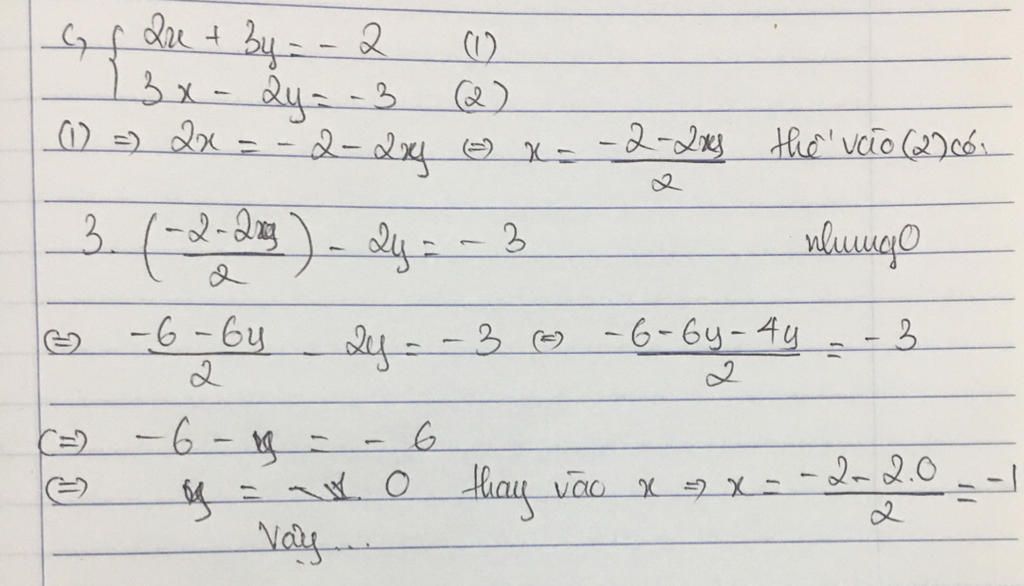 c, { 2x + 3y = - 2 (1)
3x - 2y = - 3 (2)
(1) ⇒ 2x = - 2 - 2y ⇔ x = (-2 - 2y)/2 thế vào (2) có.
3. ((-2 - 2y)/2) - 2y = - 3 nhung0
⇔ (-6 - 6y)/2 - 2y = - 3 ⇔ (-6 - 6y - 4y)/2 = - 3
⇔ - 6 - y = - 6
⇔ y = 0 thay vào x ⇒ x = (-2 - 2.0)/2 = -1
Vậy...